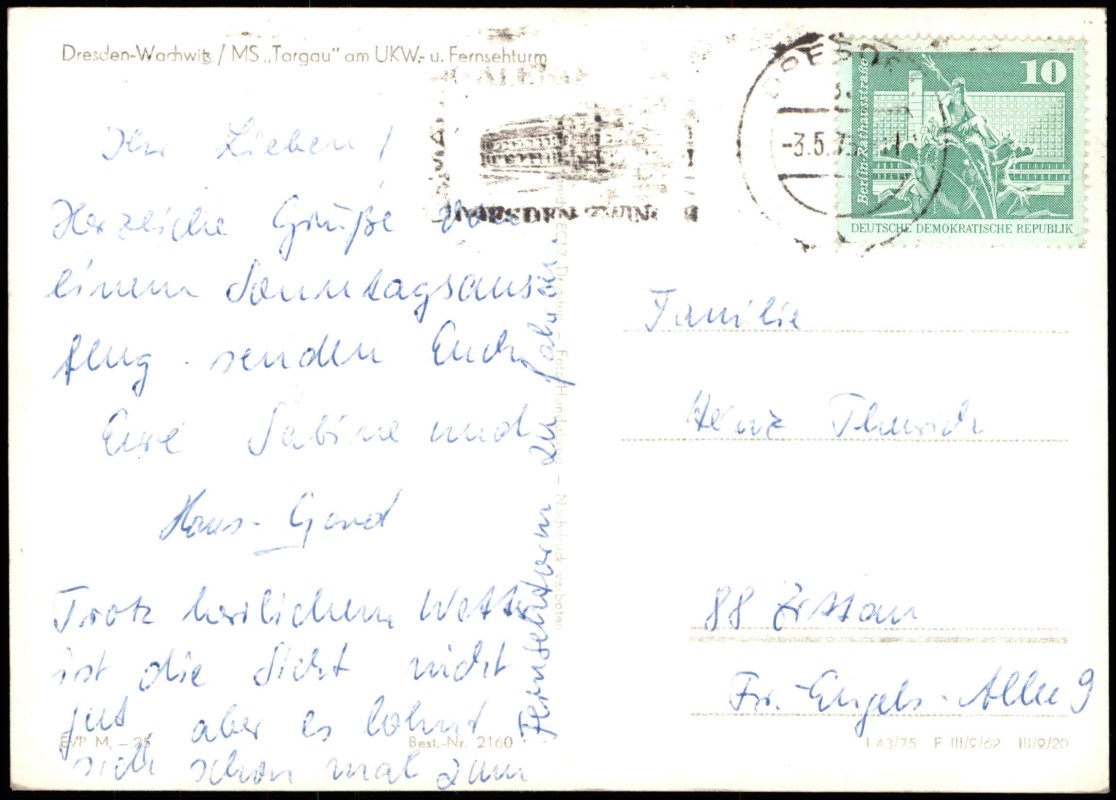 Dresden-Wachwitz / MS „Torgau" am UKW- u. Fernsehturm
Ihr Lieben!
Herzliche Grüße von
einem Sonntagsaus-
flug senden Euch
Eure Sabine und
Hans-Gerd
Trotz herlichem Wetter
ist die Sicht nicht
gut aber es lohnt
sich schon mal zum
Fernsehturm zu fahren.
EVP M. -,25
Best.-Nr. 2160
Nachdruck verboten
DRESDEN ZWINGER
DRESDEN
-3.5.75
10
Berlin-Rathausstraße
DEUTSCHE DEMOKRATISCHE REPUBLIK
Familie
Heinz
88 Zittau
Fr.-Engels-Allee 9
I 43/75 F III/9/62 III/9/20